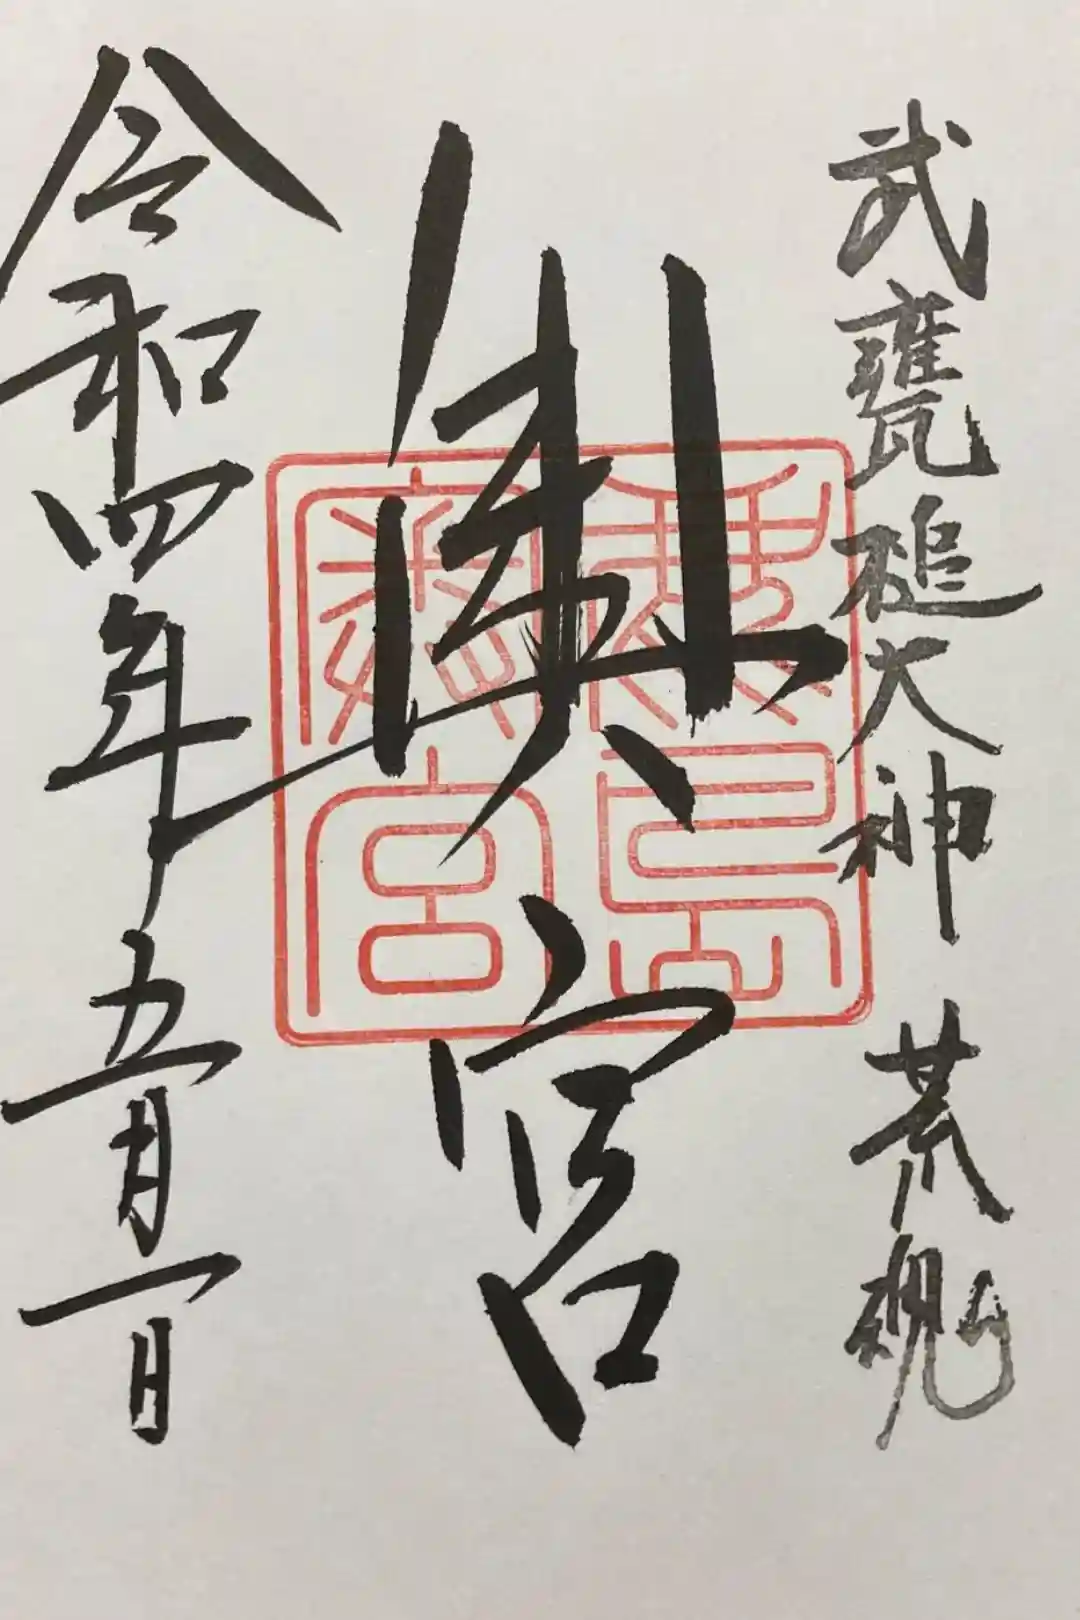 武甕槌大神 荒魂
奥宮
令和四年五月一日
鹿島
奥宮